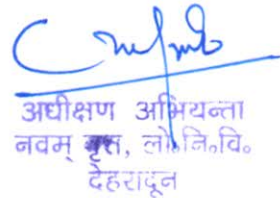 अधीक्षण अभियन्ता
नवम् वृत्त, लो०नि०वि०
देहरादून